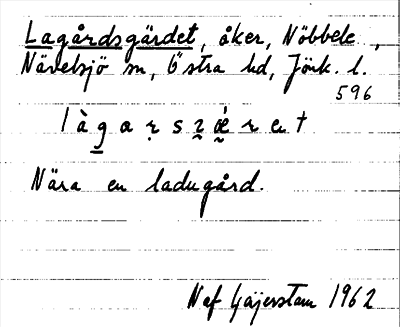 Lagårdsgärdet, åker, Nöbbele,
Nävelsjö sn, Östra hd, Jönk. l.
596
Nära en ladugård.
Naf Gäijerstam 1962